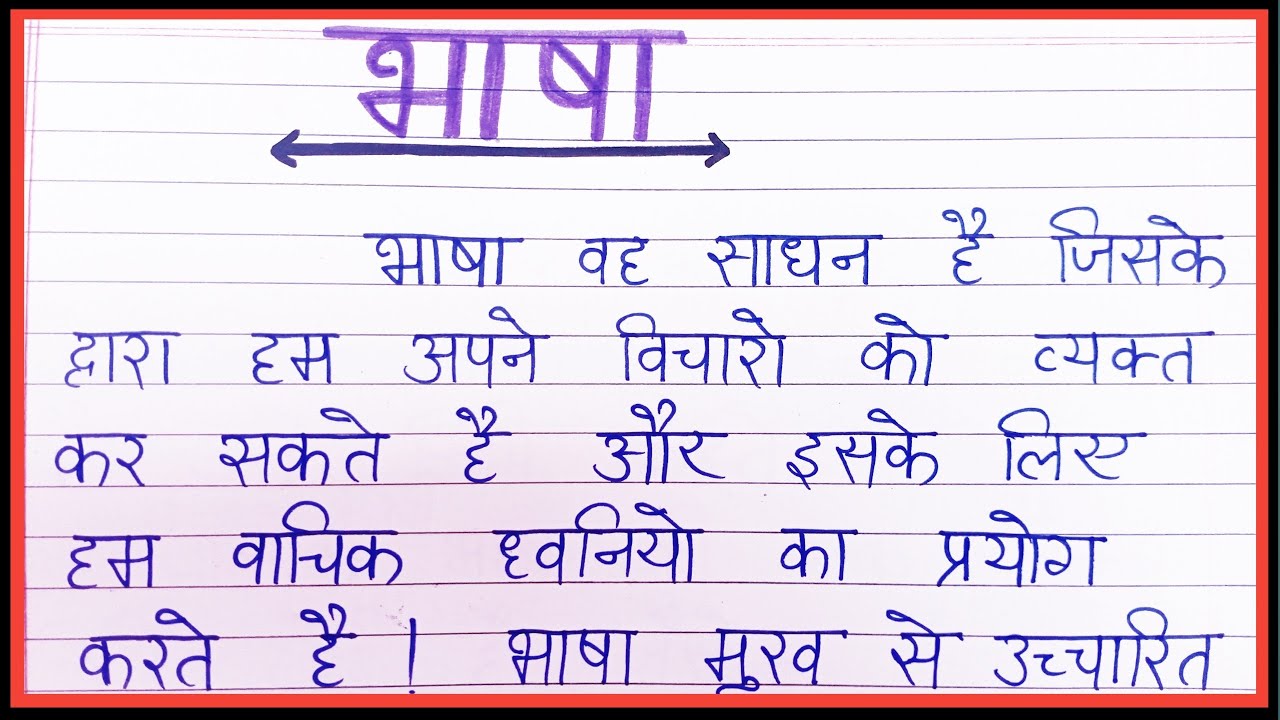 भाषा
भाषा वह साधन है जिसके
द्वारा हम अपने विचारो को व्यक्त
कर सकते है और इसके लिए
हम वाचिक ध्वनियो का प्रयोग
करते है ! भाषा मुख से उच्चारित